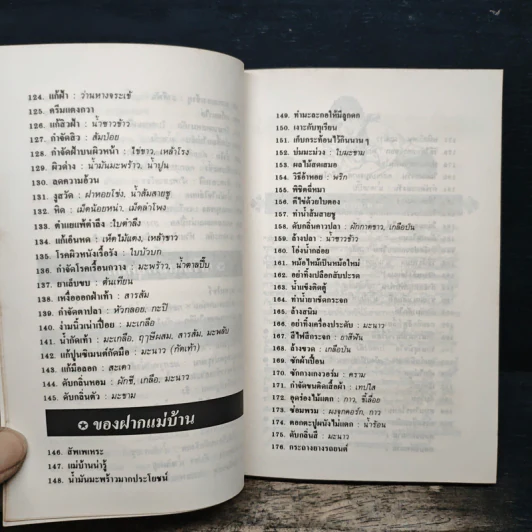 124. แก้ฝ้า : ว่านหางจระเข้
125. ครีมแตงกวา
126. แก้สิวฝ้า : น้ำซาวข้าว
127. กำจัดสิว : ส้มป่อย
128. กำจัดฝ้าบนผิวหน้า : ไข่ขาว, เหล้าโรง
129. ผิวด่าง : น้ำมันมะพร้าว, น้ำปูน
130. ลดความอ้วน
131. งูสวัด : ฝาหอยโข่ง, น้ำส้มสายชู
132. หิด : เม็ดน้อยหน่า, เม็ดลำโพง
133. ตำแยแพ้ตำลึง : ใบตำลึง
134. แก้เส้นพลด : เห็ดไม้แดง, เหล้าขาว
135. โรคผิวหนังเรื้อรัง : ใบบัวบก
136. กำจัดโรคเรือนกวาง : มะพร้าว, น้ำตาลปี๊บ
137. ยาเล็บขบ : ต้นเทียน
138. เหงื่อออกฝ่าเท้า : สารส้ม
139. กำจัดตาปลา : หัวกลอย, กะปิ
140. ง่ามนิ้วเน่าเปื่อย : มะเกลือ
141. น้ำกัดเท้า : มะเกลือ, ฤาษีผสม, สารส้ม, มะพลับ
142. แก้ปูนซิเมนต์กัดมือ : มะนาว (กัดเท้า)
143. แก้มือลอก : สะเดา
144. ดับกลิ่นหอม : ผักชี, เกลือ, มะนาว
145. ดับกลิ่นตัว : มะขาม
ของฝากแม่บ้าน
146. สัพเพเหระ
147. แม่บ้านน่ารู้
148. น้ำมันมะพร้าวมากประโยชน์
149. ทำมะละกอให้มีลูกดก
150. เงาะกับทุเรียน
151. เก็บกระท้อนไว้กินนาน ๆ
152. บ่มมะม่วง : ใบมะขาม
153. ผลไม้สดเสมอ
154. วิธีล้างหอย : พริก
155. พิชิตผี่หมา
156. ตีไข่ด้วยใบตอง
157. ทำน้ำส้มสายชู
158. ดับกลิ่นคาวปลา : ผักกาดขาว, เกลือป่น
159. ล้างปลา : น้ำซาวข้าว
160. โอ่งน้ำกร่อย
161. หม้อใหม่เป็นหม้อใหม่
162. อย่าทิ้งเปลือกสับปะรด
163. น้ำแข็งติดตู้
164. ทำน้ำยาเช็ดกระจก
165. ล้างสนิม
166. อย่าทิ้งเครื่องประดับ : มะนาว
167. สีไฟสีกระจก : ยาสีฟัน
168. ล้างขวด : เกลือป่น
169. ซักผ้าเปื้อน
170. ซักกางเกงวอร์ม : คราม
171. กำจัดขนติดเสื้อผ้า : เทปใส
172. อุดร่องไม้แตก : กาว, ขี้เลื่อย
173. ซ่อมพรม : ผงจุกคอร์ก, กาว
174. ตอกตะปูผนังไม่แตก : น้ำร้อน
175. ดับกลิ่นสี : มะนาว
176. กระถางยางรถยนต์